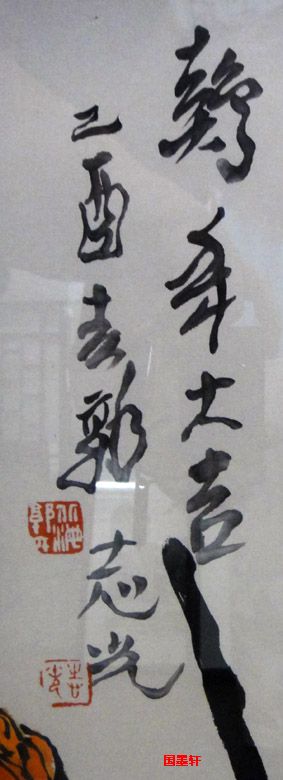 鷄年大吉
乙酉春郭志光
国墨轩